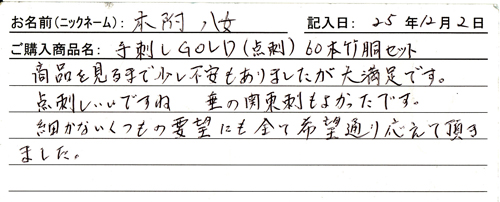 お名前(ニックネーム): 木附 八女 記入日: 25年12月2日
ご購入商品名: 手刺しGOLD(点刺) 60本竹胴セット
商品を見るまで少し不安もありましたが大満足です。
点刺しいいですね 垂の関東刺もよかったです。
細かないくつもの要望にも全て希望通り応えて頂き
ました。